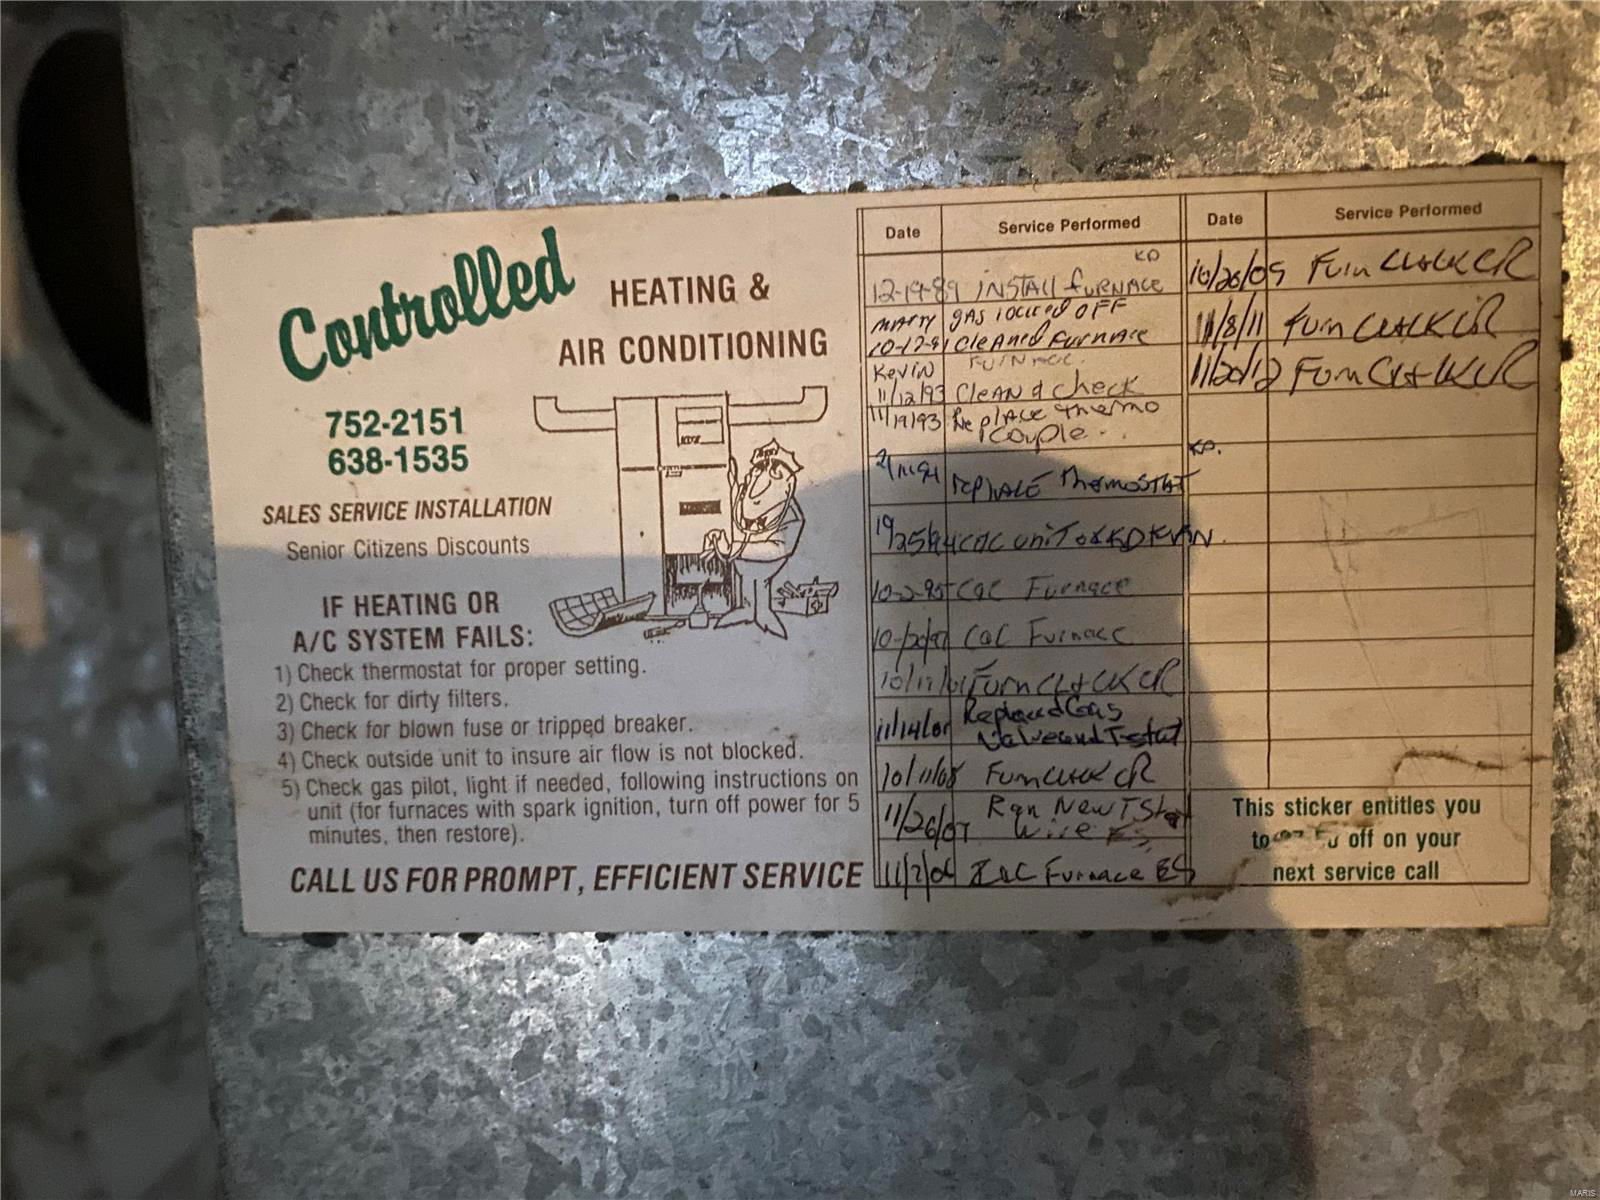 Controlled
HEATING &
AIR CONDITIONING
752-2151
638-1535
SALES SERVICE INSTALLATION
Senior Citizens Discounts
IF HEATING OR
A/C SYSTEM FAILS:
1) Check thermostat for proper setting.
2) Check for dirty filters.
3) Check for blown fuse or tripped breaker.
4) Check outside unit to insure air flow is not blocked.
5) Check gas pilot, light if needed, following instructions on
unit (for furnaces with spark ignition, turn off power for 5
minutes, then restore).
CALL US FOR PROMPT, EFFICIENT SERVICE
Date Service Performed
KD
12-19-89 INSTALL furnace
Marty gas locked OFF
10-17-91 Cleaned Furnace
Kevin Furnace
11/12/93 Clean & Check
11/19/93 Replace thermo
couple
replace Thermostat KD.
10-2-95 C&C Furnace
C&C Furnace
Furn CL+CK CR
11/14/01 Replaced Gas
Valve and T-stat
Furn CL+CK CR
11/26/07 Ran New TStat
Wire
C&C Furnace
Date Service Performed
10/26/09 Furn CL+CK CR
11/8/11 Furn CL+CK CR
11/20/12 Furn CL+CK CR
This sticker entitles you
to off on your
next service call
MARIS